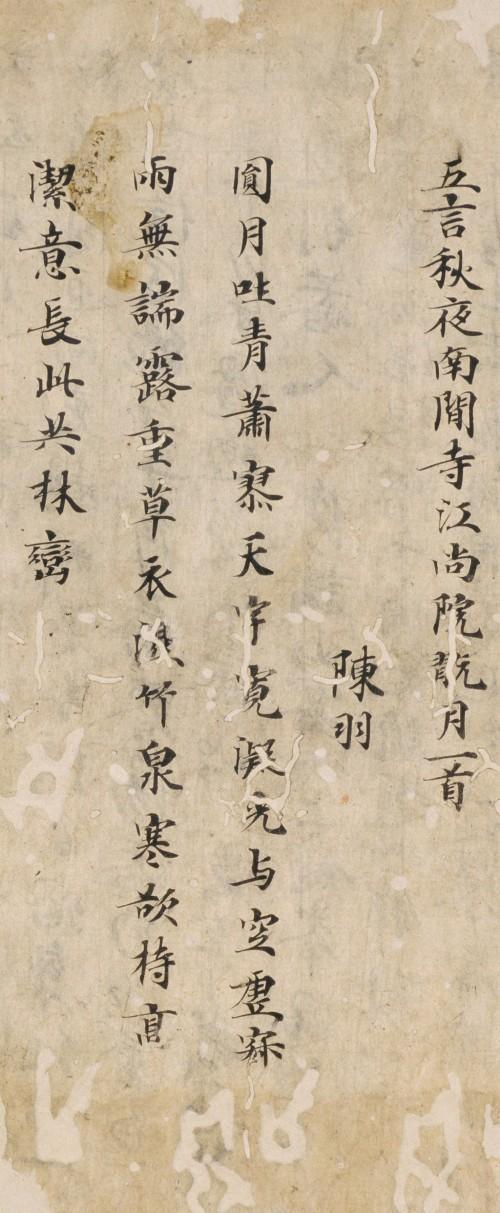 五言秋夜南閒寺江尚院翫月一首
陳羽
圓月吐青蕭寥天宇寛凝光与空虛寂
兩無端露重草衣竹泉寒欲持高
潔意長此共林巒